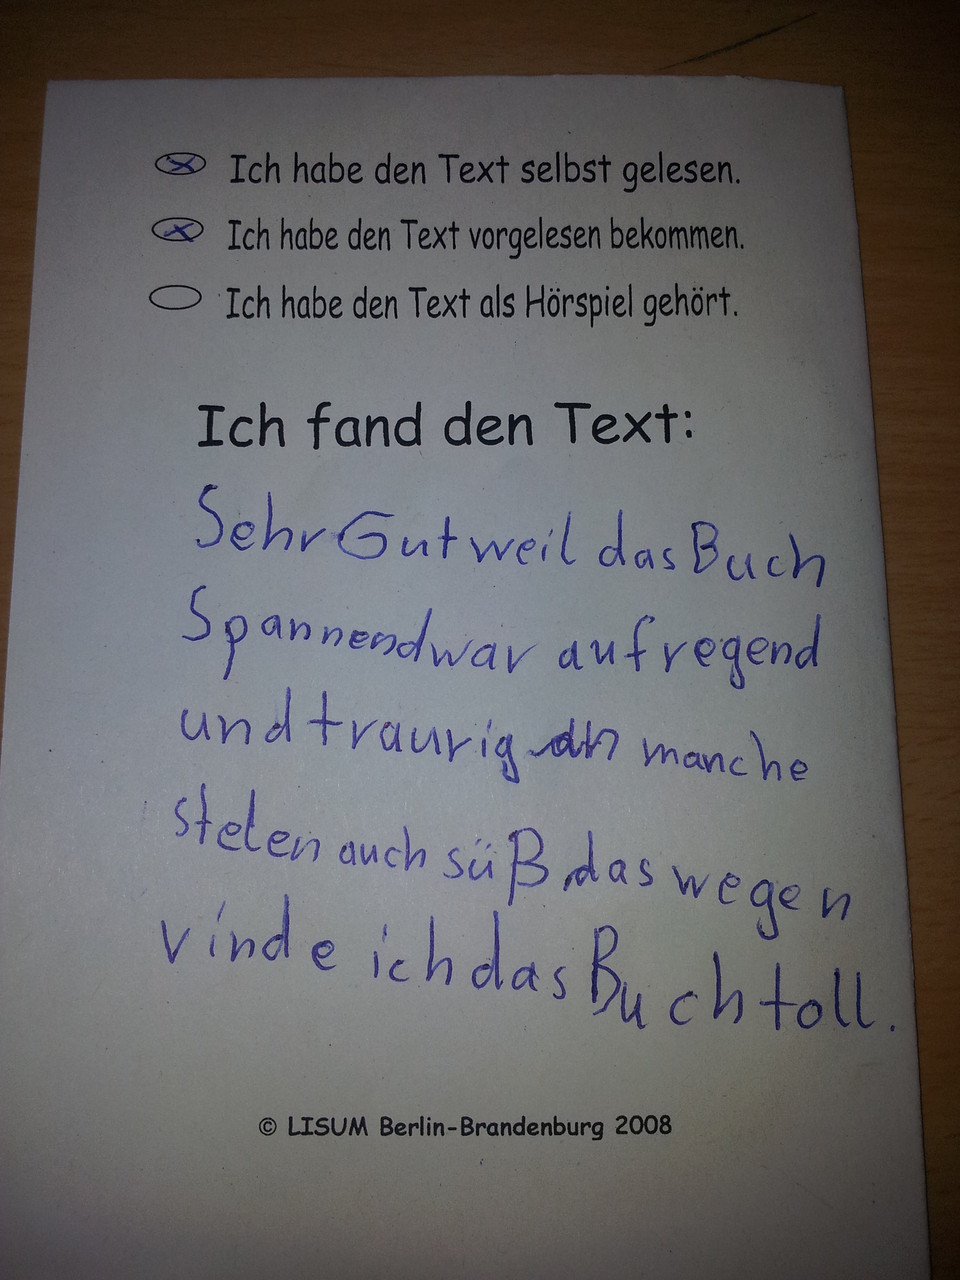 Ich habe den Text selbst gelesen.
Ich habe den Text vorgelesen bekommen.
Ich habe den Text als Hörspiel gehört.
Ich fand den Text:
Sehr Gut weil das Buch
Spannend war aufregend
und traurig an manche
stelen auch süß, das wegen
vinde ich das Buch toll.
© LISUM Berlin-Brandenburg 2008